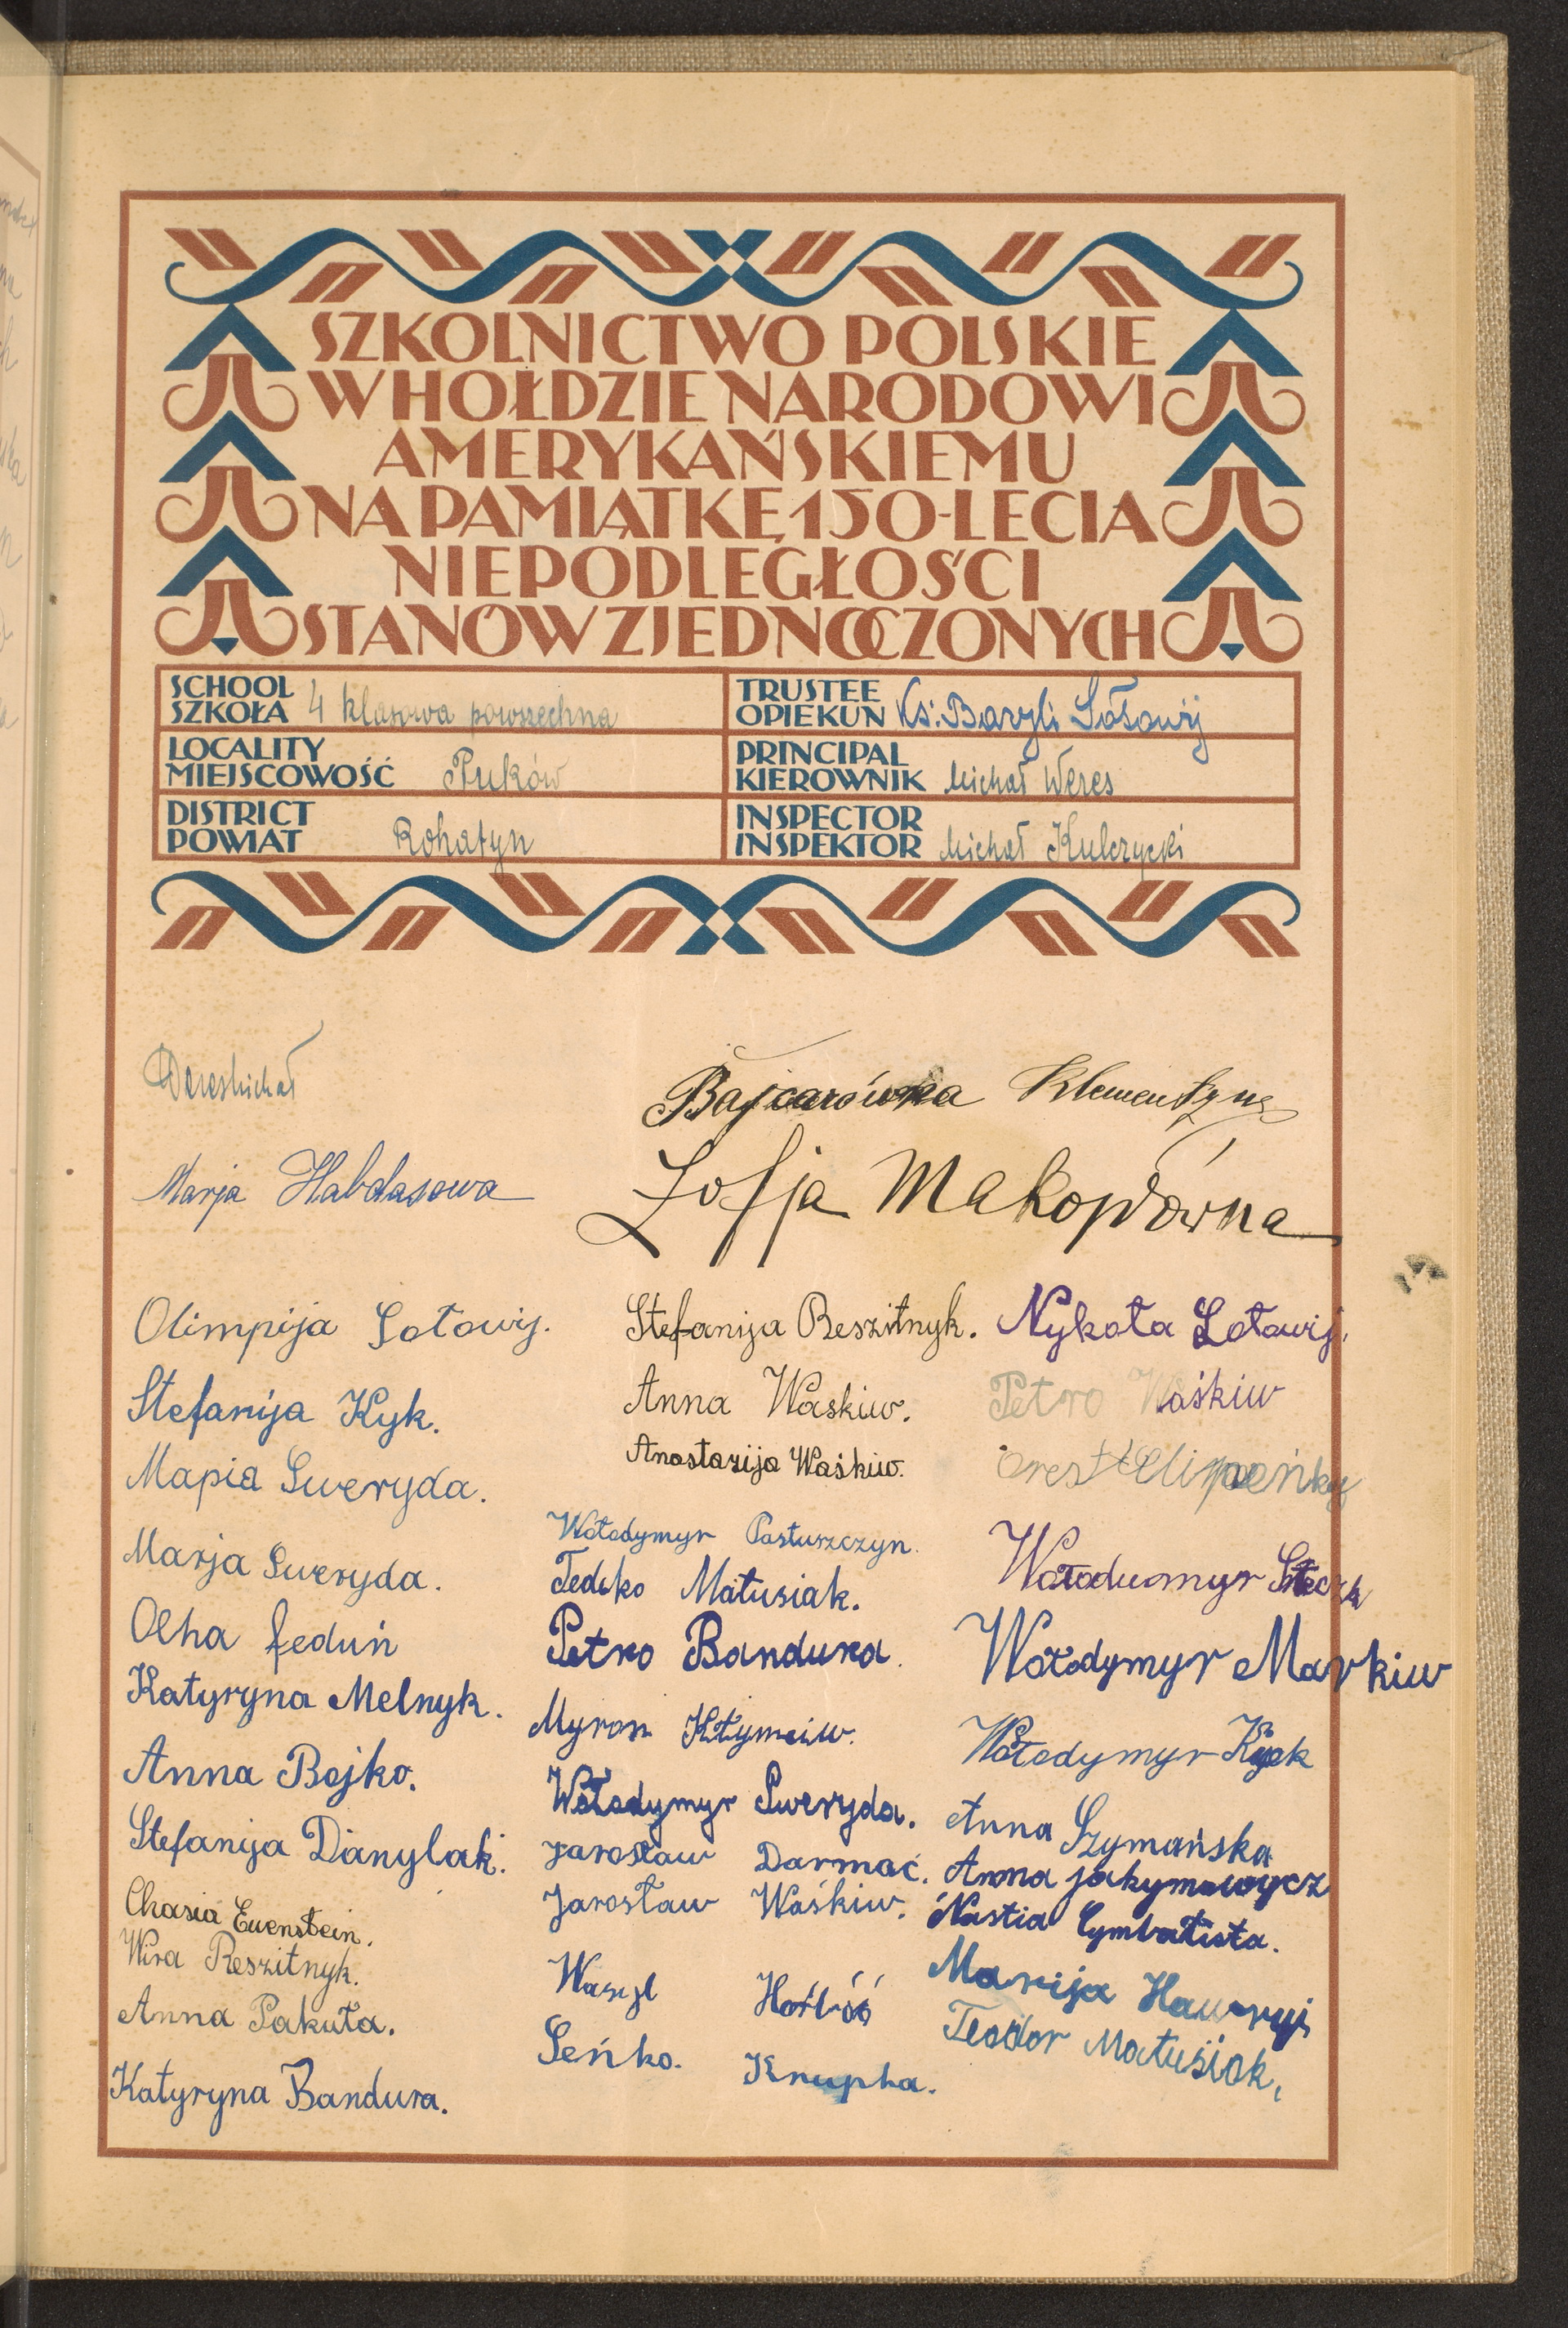 SZKOLNICTWO POLSKIE
W HOŁDZIE NARODOWI
AMERYKAŃSKIEMU
NA PAMIĄTKĘ 150-LECIA
NIEPODLEGŁOŚCI
STANÓW ZJEDNOCZONYCH
SCHOOL
SZKOŁA 4 klasowa powszechna
TRUSTEE
OPIEKUN Ks. Bazyli Sołowij
LOCALITY
MIEJSCOWOŚĆ Puków
PRINCIPAL
KIEROWNIK Michał Weres
DISTRICT
POWIAT Rohatyn
INSPECTOR
INSPEKTOR Michał Kulczycki
Weres Michał
Bajcarówna Klementyna
Marja Habdasowa
Zofja Makopówna
Olimpija Sołowij.
Stefanija Kyk.
Mapia Sweryda.
Marja Sweryda.
Olha feduń
Katyryna Melnyk.
Anna Bojko.
Stefanija Danylak.
Chasia Euenstein.
Wira Reszitnyk.
Anna Pakuła.
Katyryna Bandura.
Stefanija Reszitnyk.
Anna Waskiw.
Anastazija Waśkiw.
Wołodymyr Pastuszczyn.
Fedko Matusiak.
Petro Bandura.
Myron Kłymciw.
Wołodymyr Sweryda.
Jarosław Darmać.
Jarosław Waśkiw.
Wasyl
Seńko. Krupka.
Nykoła Sołowij.
Petro Waśkiw
Orest
Wołoduomyr
Wołodymyr Markiw
Wołodymyr
Anna Szymańska
Anna jakymowycz
Nastia Cymbalista.
Marija Hawryj
Teodor Matusiak,